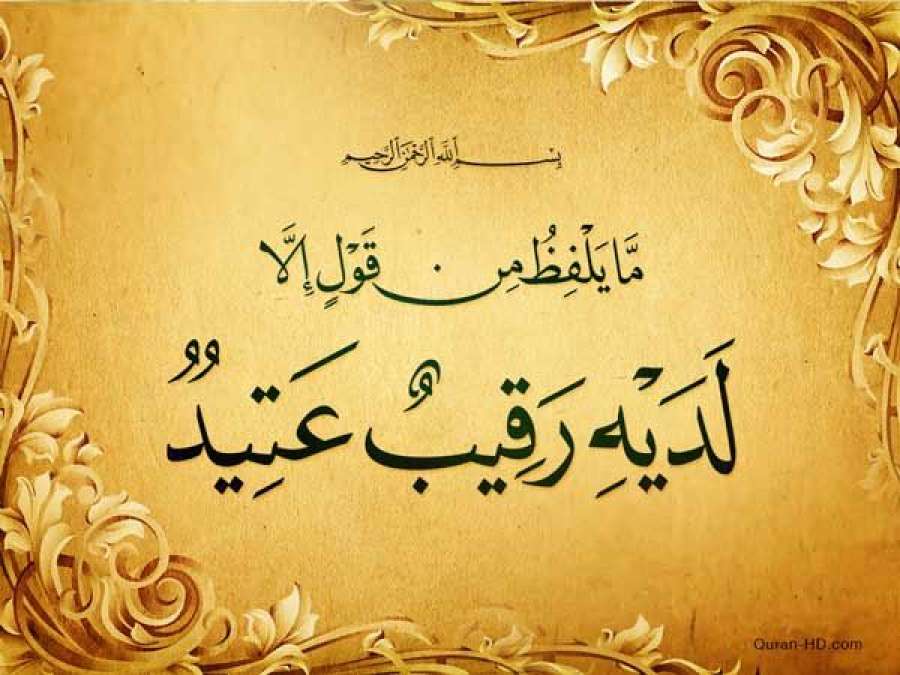 بِسْمِ ٱللَّهِ ٱلرَّحْمَٰنِ ٱلرَّحِيمِ
مَّا يَلْفِظُ مِن قَوْلٍ إِلَّا
لَدَيْهِ رَقِيبٌ عَتِيدٌ
Quran-HD.com